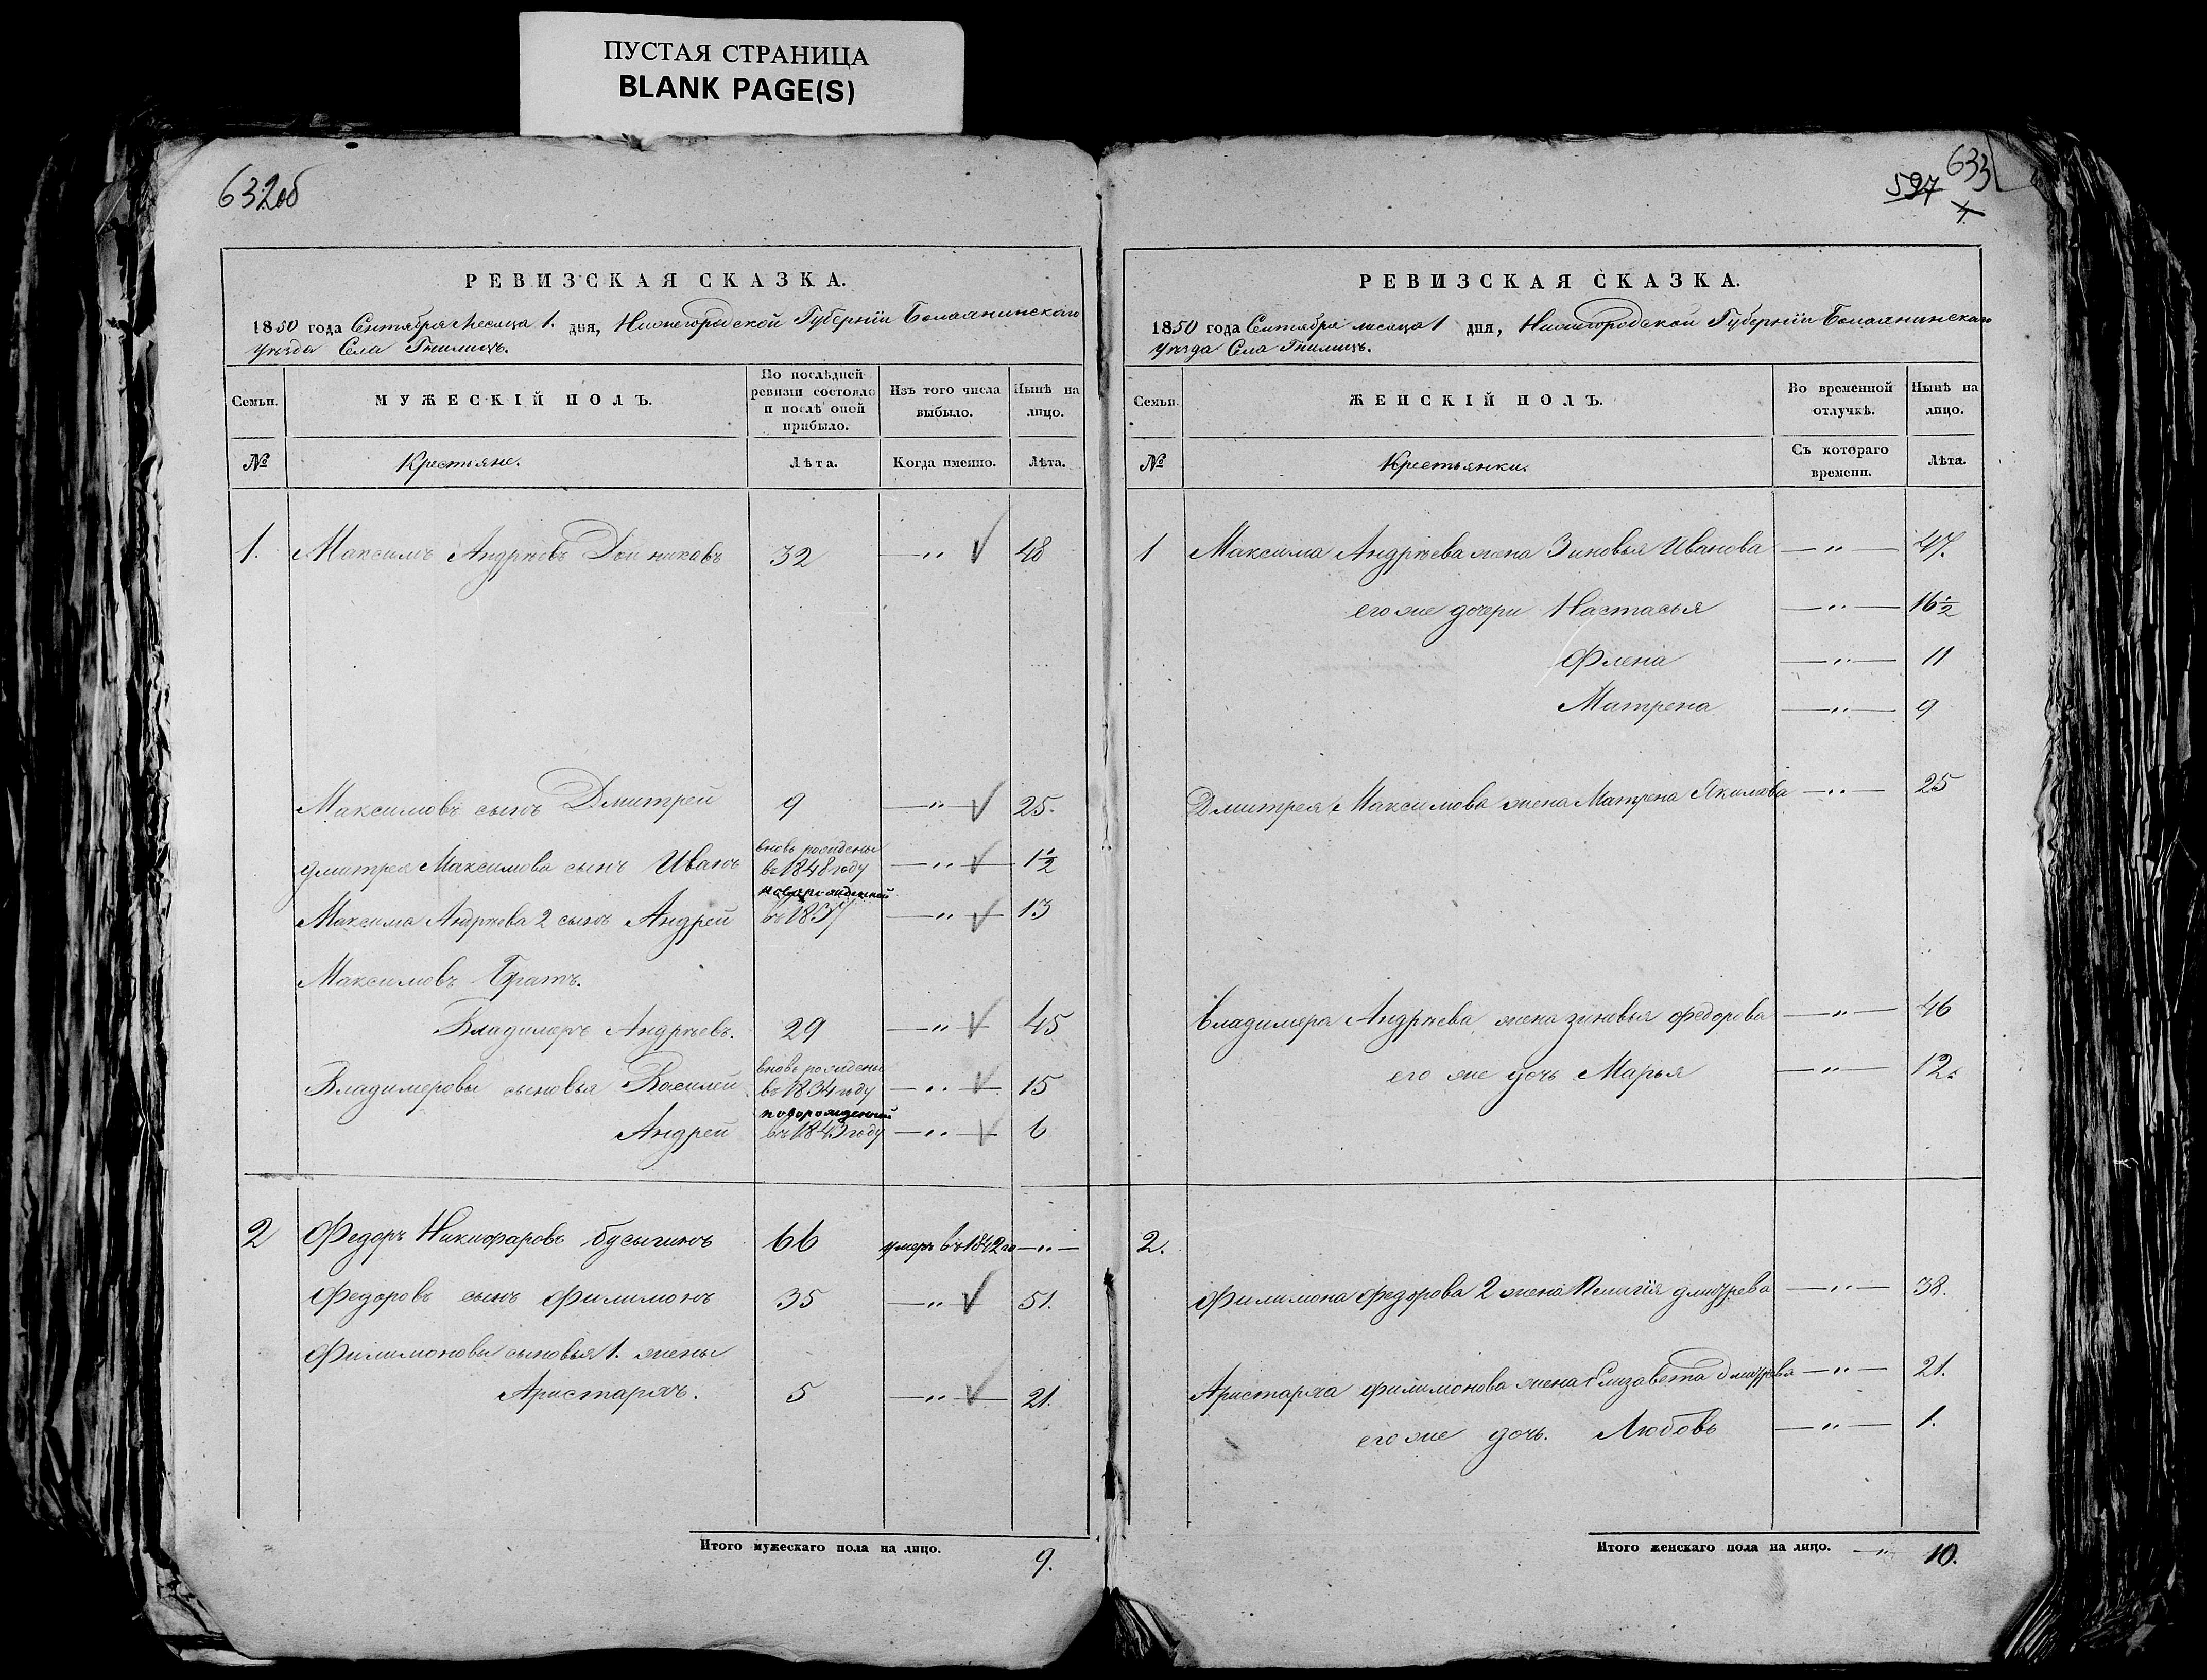 ПУСТАЯ СТРАНИЦА
BLANK PAGE(S)
632об
РЕВИЗСКАЯ СКАЗКА.
1850 года Сентября месяца 1. дня, Нижегородской Губернiи Балахнинскаго
уѣзда Села Гнилицъ.
Семьи.
МУЖЕСКIЙ ПОЛЪ.
По послѣдней ревизiи состояло и послѣ оной прибыло.
Изъ того числа выбыло.
Нынѣ на лицо.
№
Крестьяне.
Лѣта.
Когда именно.
Лѣта.
1. Максимъ Андрѣевъ 32 —"— 48
Максимовъ сынъ Дмитрей 9 —"— 25.
дмитрея Максимова сынъ Иванъ вновь рожденъ въ 1848 году —"— 1 1/2
Максима Андрѣева 2 сынъ Андрей новорожденной въ 1837 —"— 13
Максимовъ Братъ.
Владимеръ Андрѣевъ. 29 —"— 45
Владимеровы сыновья Василей вновь рожденъ въ 1834 году —"— 15
Андрей новорожденный въ 1843 году —"— 6
2 Федоръ Никифаровъ бусыгинъ 66 умеръ въ 1842 го —"—
Федоровъ сынъ Филимонъ 35 —"— 51.
Филимоновы сыновья 1. жены
Аристархъ. 5 —"— 21.
Итого мужескаго пола на лицо. 9.
633
597
4
РЕВИЗСКАЯ СКАЗКА.
1850 года Сентября месяца 1 дня, Нижегородской Губернiи Балахнинскаго
уѣзда Села Гнилицъ.
Семьи.
ЖЕНСКIЙ ПОЛЪ.
Во временной отлучкѣ.
Нынѣ на лицо.
№
Крестьянки.
Съ котораго времени.
Лѣта.
1 Максима Андрѣева жена Зиновья Иванова —"— 47.
его же дочери Настасья —"— 16 1/2
Флена —"— 11
Матрена —"— 9
Дмитрея Максимова жена Матрена Якимова —"— 25
Владимера Андрѣева жена зиновья федорова —"— 46
его же дочь Марья —"— 12.
2.
Филимона федорова 2 жена Пелагiя дмитрева —"— 38.
Аристарха филимонова жена Елизавета дмитрева —"— 21.
его же дочь. Любовь —"— 1.
Итого женскаго пола на лицо. —"— 10.